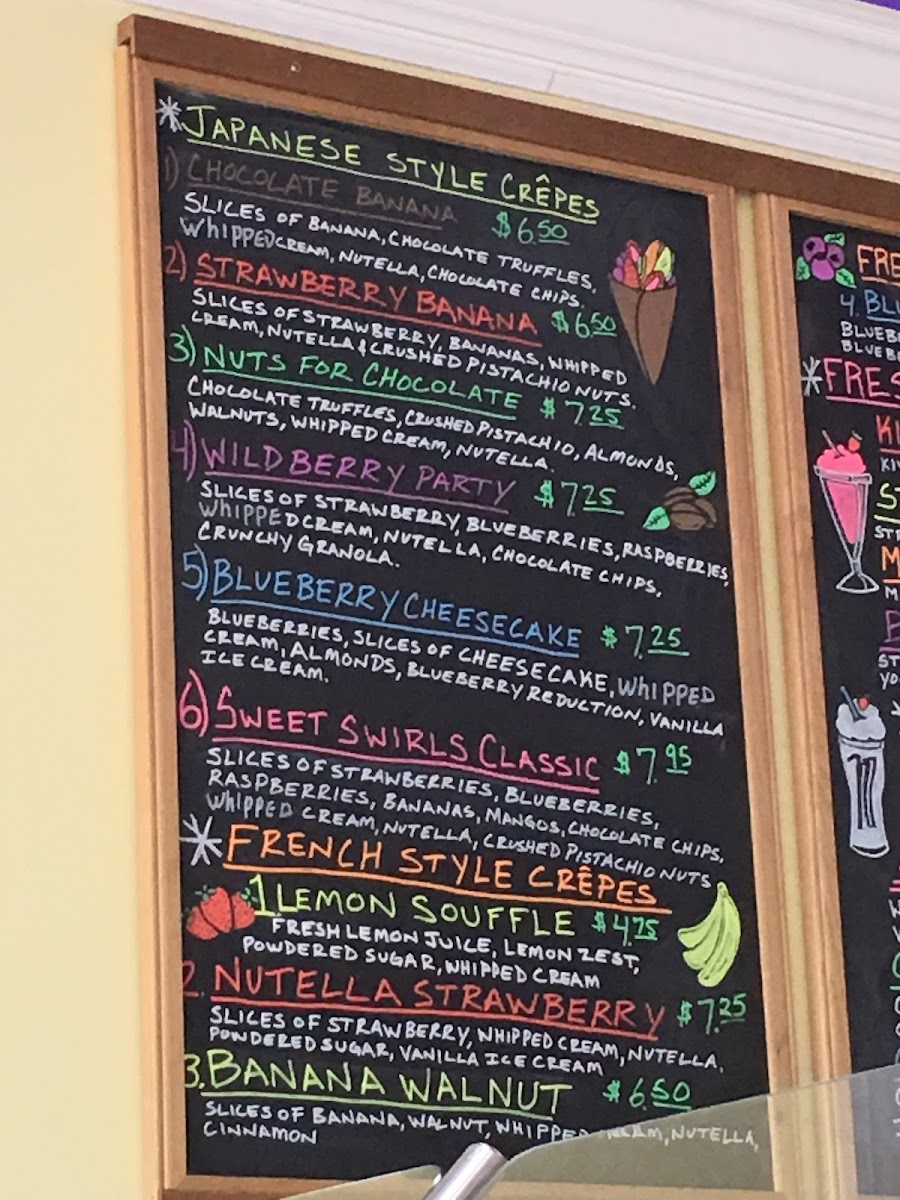 *JAPANESE STYLE CRÊPES
1) CHOCOLATE BANANA $6.50
SLICES OF BANANA, CHOCOLATE TRUFFLES,
WHIPPED CREAM, NUTELLA, CHOCOLATE CHIPS.
2) STRAWBERRY BANANA $6.50
SLICES OF STRAWBERRY, BANANAS, WHIPPED
CREAM, NUTELLA & CRUSHED PISTACHIO NUTS.
3) NUTS FOR CHOCOLATE $7.25
CHOCOLATE TRUFFLES, CRUSHED PISTACHIO, ALMONDS,
WALNUTS, WHIPPED CREAM, NUTELLA.
4) WILD BERRY PARTY $7.25
SLICES OF STRAWBERRY, BLUEBERRIES, RASPBERRIES,
WHIPPED CREAM, NUTELLA, CHOCOLATE CHIPS,
CRUNCHY GRANOLA.
5) BLUEBERRY CHEESECAKE $7.25
BLUEBERRIES, SLICES OF CHEESECAKE, WHIPPED
CREAM, ALMONDS, BLUEBERRY REDUCTION, VANILLA
ICE CREAM.
6) SWEET SWIRLS CLASSIC $7.95
SLICES OF STRAWBERRIES, BLUEBERRIES,
RASPBERRIES, BANANAS, MANGOS, CHOCOLATE CHIPS,
WHIPPED CREAM, NUTELLA, CRUSHED PISTACHIO NUTS
*FRENCH STYLE CRÊPES
1 LEMON SOUFFLE $4.75
FRESH LEMON JUICE, LEMON ZEST,
POWDERED SUGAR, WHIPPED CREAM
2. NUTELLA STRAWBERRY $7.25
SLICES OF STRAWBERRY, WHIPPED CREAM, NUTELLA,
POWDERED SUGAR, VANILLA ICE CREAM
3. BANANA WALNUT $6.50
SLICES OF BANANA, WALNUT, WHIPPED CREAM, NUTELLA,
CINNAMON
FRE
4. BLU
BLUEB
BLUEB
*FRES
KI
KIV
ST
STR
M
M
ST
YO